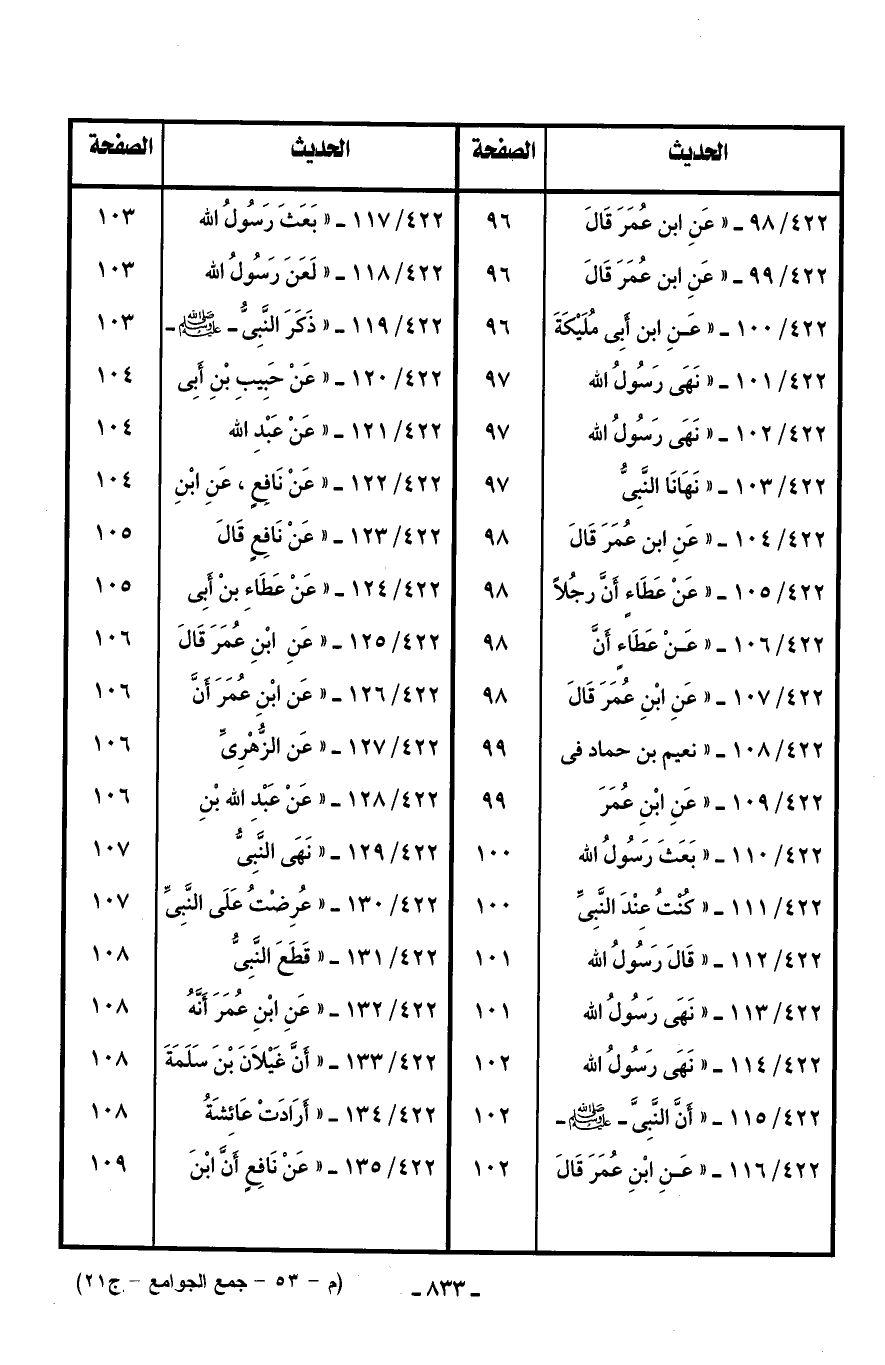 الحديث الصفحة الحديث الصفحة
٤٢٢/ ٩٨ ـ « عَنِ ابن عُمَرَ قَالَ ٩٦ ٤٢٢/ ١١٧ ـ « بَعَثَ رَسُولُ الله ١٠٣
٤٢٢/ ٩٩ ـ « عَنِ ابن عُمَرَ قَالَ ٩٦ ٤٢٢/ ١١٨ ـ « لَعَنَ رَسُولُ الله ١٠٣
٤٢٢/ ١٠٠ ـ « عَـنِ ابن أَبِى مُلَيْكَةَ ٩٦ ٤٢٢/ ١١٩ ـ « ذَكَرَ النَّبِىُّ ـ ﷺ ـ ١٠٣
٤٢٢/ ١٠١ ـ « نَهَى رَسُولُ الله ٩٧ ٤٢٢/ ١٢٠ ـ « عَنْ حَبِيبِ بْنِ أَبِى ١٠٤
٤٢٢/ ١٠٢ ـ « نَهَى رَسُولُ الله ٩٧ ٤٢٢/ ١٢١ ـ « عَنْ عَبْدِ الله ١٠٤
٤٢٢/ ١٠٣ ـ « نَهَانَا النَّبِىُّ ٩٧ ٤٢٢/ ١٢٢ ـ « عَنْ نَافِعٍ ، عَنِ ابْنِ ١٠٤
٤٢٢/ ١٠٤ ـ « عَنِ ابن عُمَرَ قَالَ ٩٨ ٤٢٢/ ١٢٣ ـ « عَنْ نَافِعٍ قَالَ ١٠٥
٤٢٢/ ١٠٥ ـ « عَنْ عَطَاءٍ أَنَّ رجُلاً ٩٨ ٤٢٢/ ١٢٤ ـ « عَنْ عَطَاءِ بنْ أَبِى ١٠٥
٤٢٢/ ١٠٦ ـ « عَـنْ عَطَاءٍ أَنَّ ٩٨ ٤٢٢/ ١٢٥ ـ « عَنِ ابْنِ عُمَرَ قَالَ ١٠٦
٤٢٢/ ١٠٧ ـ « عَنِ ابْنِ عُمَرَ قَالَ ٩٨ ٤٢٢/ ١٢٦ ـ « عَنِ ابْنِ عُمَرَ أَنَّ ١٠٦
٤٢٢/ ١٠٨ ـ « نعيم بن حماد فى ٩٩ ٤٢٢/ ١٢٧ ـ « عَنِ الزُّهْرِىِّ ١٠٦
٤٢٢/ ١٠٩ ـ « عَنِ ابْنِ عُمَرَ ٩٩ ٤٢٢/ ١٢٨ ـ « عَنْ عَبْدِ الله بْنِ ١٠٦
٤٢٢/ ١١٠ ـ « بَعَثَ رَسُولُ الله ١٠٠ ٤٢٢/ ١٢٩ ـ « نَهَى النَّبِىُّ ١٠٧
٤٢٢/ ١١١ ـ « كُنْتُ عِنْدَ النَّبِىِّ ١٠٠ ٤٢٢/ ١٣٠ ـ « عُرِضْتُ عَلَى النَّبِىِّ ١٠٧
٤٢٢/ ١١٢ ـ « قَالَ رَسُولُ الله ١٠١ ٤٢٢/ ١٣١ ـ « قَطَعَ النَّبِىُّ ١٠٨
٤٢٢/ ١١٣ ـ « نَهَى رَسُولُ الله ١٠١ ٤٢٢/ ١٣٢ ـ « عَنِ ابْنِ عُمَرَ أَنَّهُ ١٠٨
٤٢٢/ ١١٤ ـ « نَهَى رَسُولُ الله ١٠٢ ٤٢٢/ ١٣٣ ـ « أَنَّ غَيْلاَنَ بْنَ سَلَمَةَ ١٠٨
٤٢٢/ ١١٥ ـ « أَنَّ النَّبِىَّ ـ ﷺ ـ ١٠٢ ٤٢٢/ ١٣٤ ـ « أَرَادَتْ عَائِشَةُ ١٠٨
٤٢٢/ ١١٦ ـ « عَـنِ ابْنِ عُمَرَ قَالَ ١٠٢ ٤٢٢/ ١٣٥ ـ « عَنْ نَافِعٍ أَنَّ ابْنَ ١٠٩
ـ ٨٣٣ ـ (م - ٥٣ - جمع الجوامع - ج٢١)